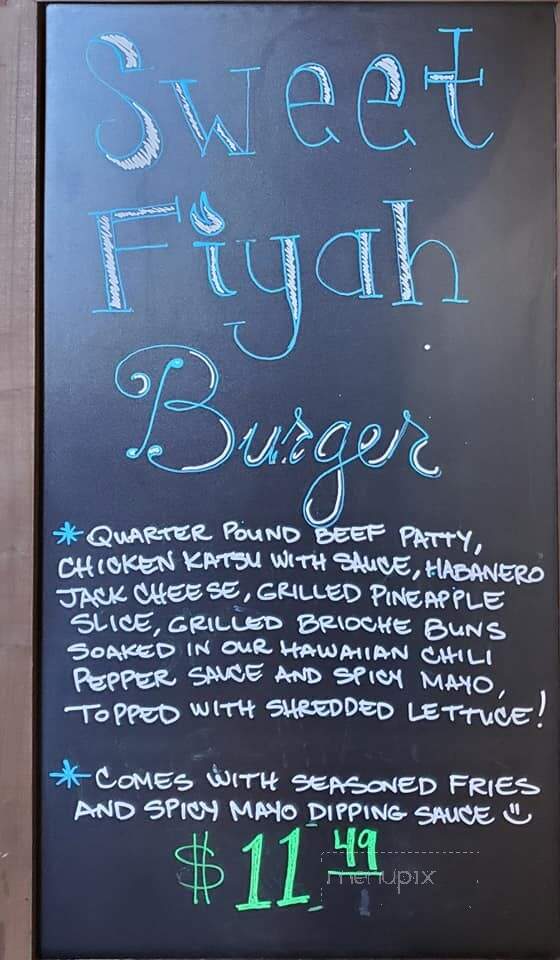 Sweet
Fiyah
Burger
* QUARTER POUND BEEF PATTY,
CHICKEN KATSU WITH SAUCE, HABANERO
JACK CHEESE, GRILLED PINEAPPLE
SLICE, GRILLED BRIOCHE BUNS
SOAKED IN OUR HAWAIIAN CHILI
PEPPER SAUCE AND SPICY MAYO,
TOPPED WITH SHREDDED LETTUCE!
* COMES WITH SEASONED FRIES
AND SPICY MAYO DIPPING SAUCE
$11.49
menupix